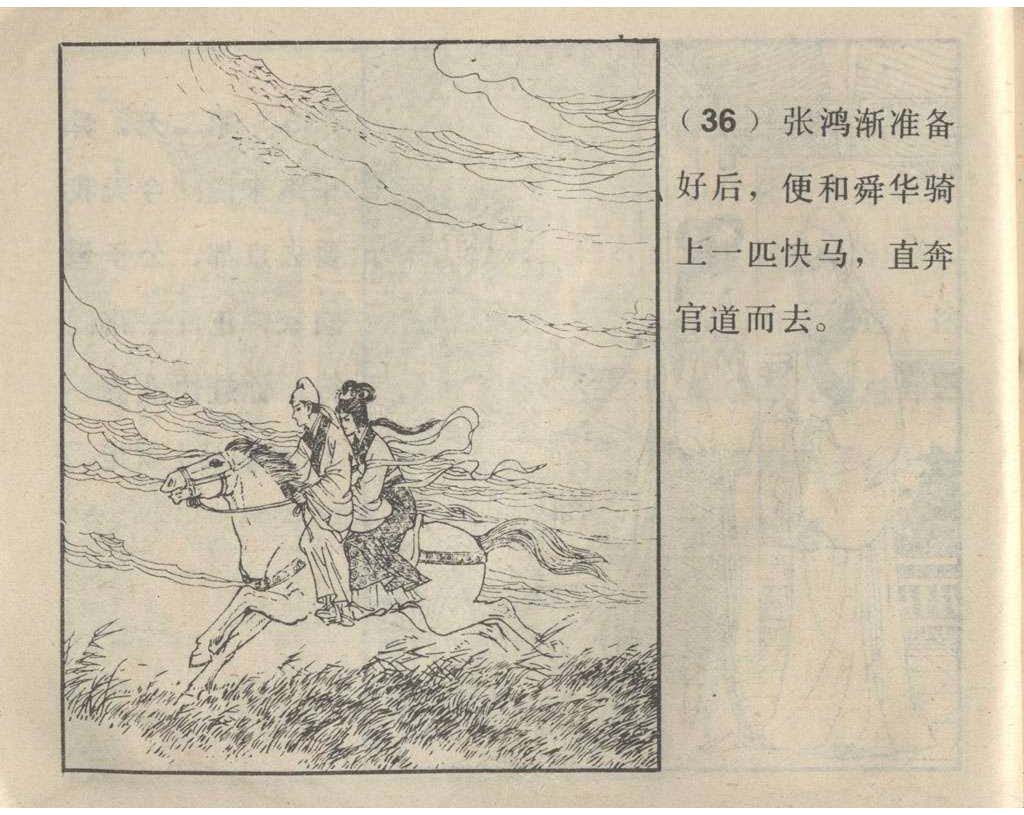 （36）张鸿渐准备
好后，便和舜华骑
上一匹快马，直奔
官道而去。